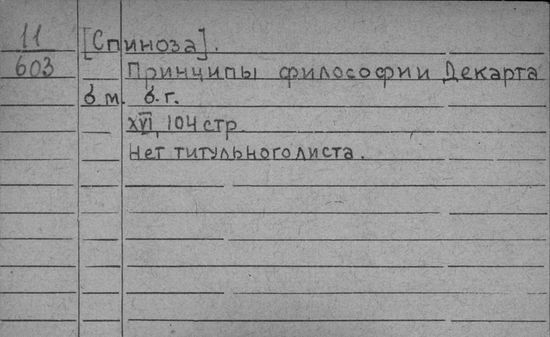 11
603
[Спиноза].
Принципы философии Декарта
б.м. б.г.
XVI, 104 стр.
Нет титульного листа.